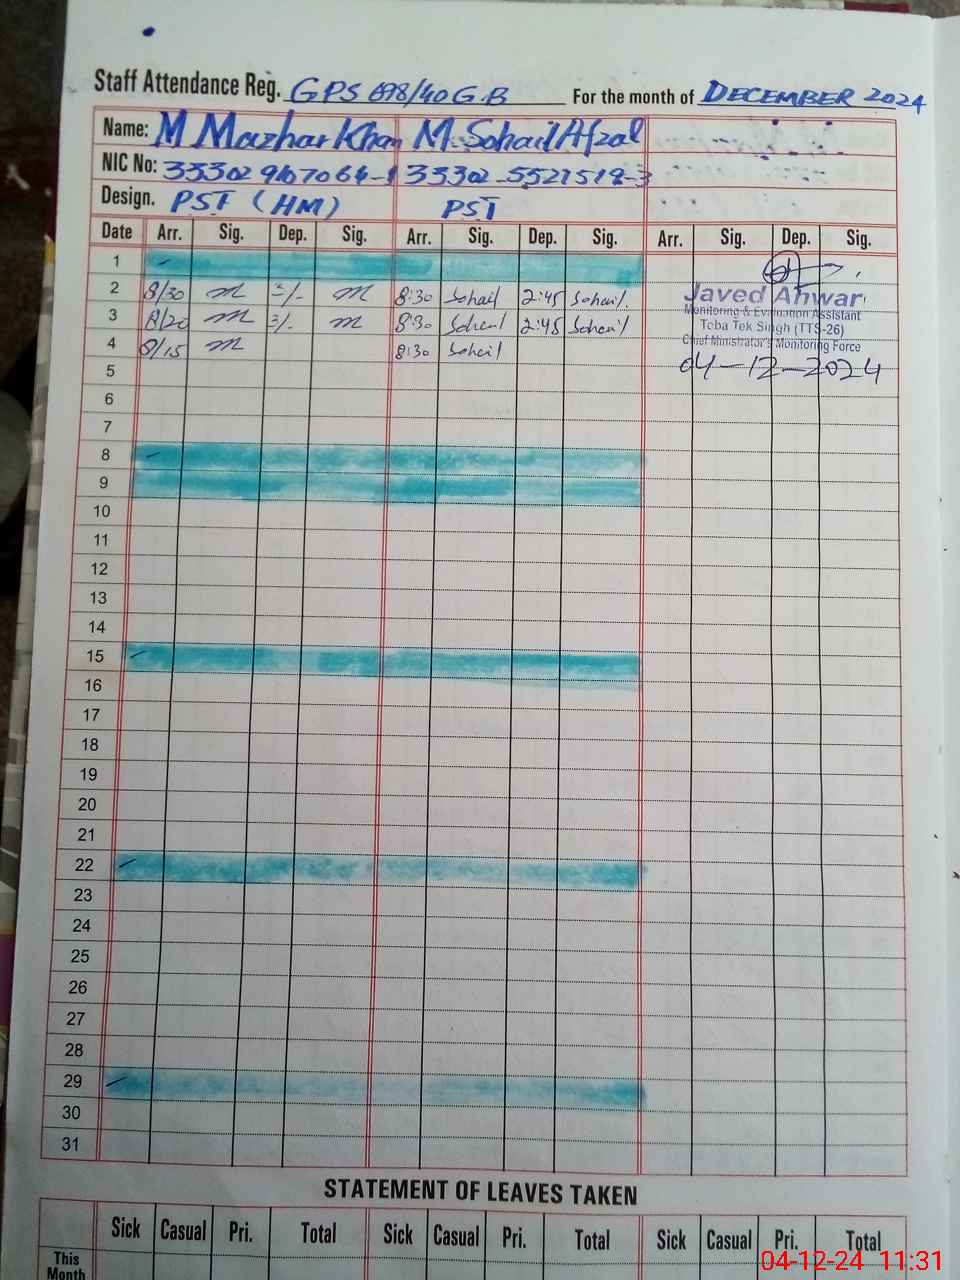 Staff Attendance Reg. GPS 698/40 GB For the month of DECEMBER 2024
Name: M Mazhar Khan M. Sohail Afzal
NIC No: 33302 33302-5521518-3
Design. PST (HM) PST
Date Arr. Sig. Dep. Sig. Arr. Sig. Dep. Sig. Arr. Sig. Dep. Sig.
1
2 8/30 m 3/- m 8:30 Sohail 2:45 Sohail
3 8/20 m 3/- m 8:30 Sohail 2:45 Sohail
4 8/15 m 8:30 Sohail
Javed Anwar
Monitoring & Evaluation Assistant
Toba Tek Singh (TTS-26)
Chief Minister's Monitoring Force
04-12-2024
5
6
7
8
9
10
11
12
13
14
15
16
17
18
19
20
21
22
23
24
25
26
27
28
29
30
31
STATEMENT OF LEAVES TAKEN
Sick Casual Pri. Total Sick Casual Pri. Total Sick Casual Pri. Total
This
Month
04-12-24 11:31